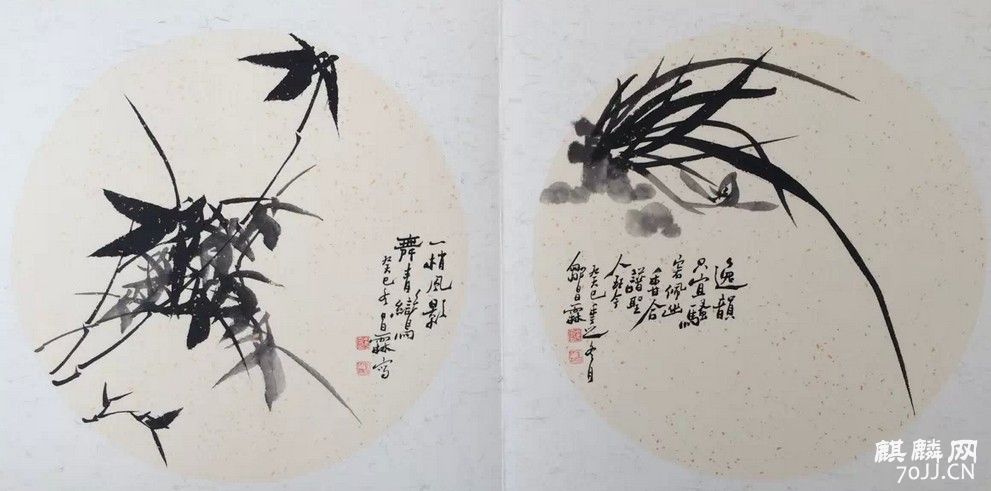 一梢風影
舞青鸞
癸巳冬昌霖寫
逸韻
只宜騷
客佩幽
香合
譜聖
人琴
癸巳之冬月
鄒昌霖
麒麟网
70JJ.CN